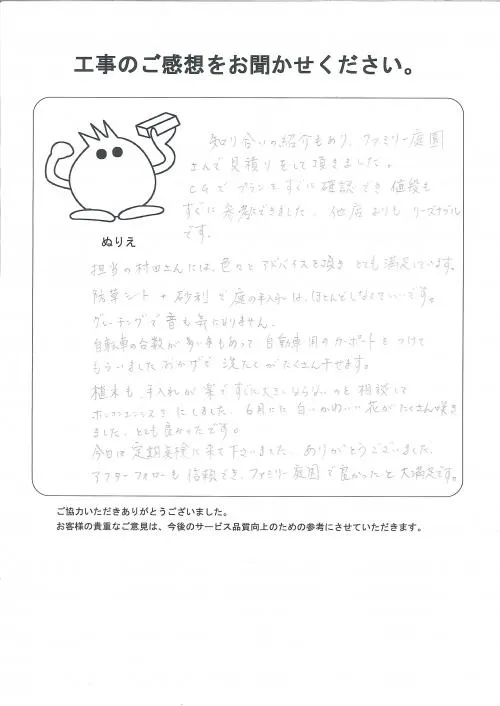 工事のご感想をお聞かせください。
知り合いの紹介もあり、ファミリー庭園
さんで見積りをして頂きました。
CGでプランをすぐに確認でき値段も
すぐに参考にできました。他店よりもリーズナブル
です。
ぬりえ
担当の村田さんには、色々とアドバイスを頂きとても満足しています。
防草シート+砂利で庭の手入れは、ほとんどしなくていいです。
グレーチングで音も気になりません。
自転車の台数が多い事もあって、自動車用のカーポートをつけて
もらいましたおかげで洗たくがたくさん干せます。
植木も、手入れが楽ですぐに大きくならないのを相談して
ホンコンエンシスきにしました。6月にに白いかわいい花がたくさん咲き
ました。とても良かったです。
今日は定期点検に来て下さいました。ありがとうございました。
アフターフォローも信頼でき、ファミリー庭園で良かったと大満足です。
ご協力いただきありがとうございました。
お客様の貴重なご意見は、今後のサービス品質向上のための参考にさせていただきます。